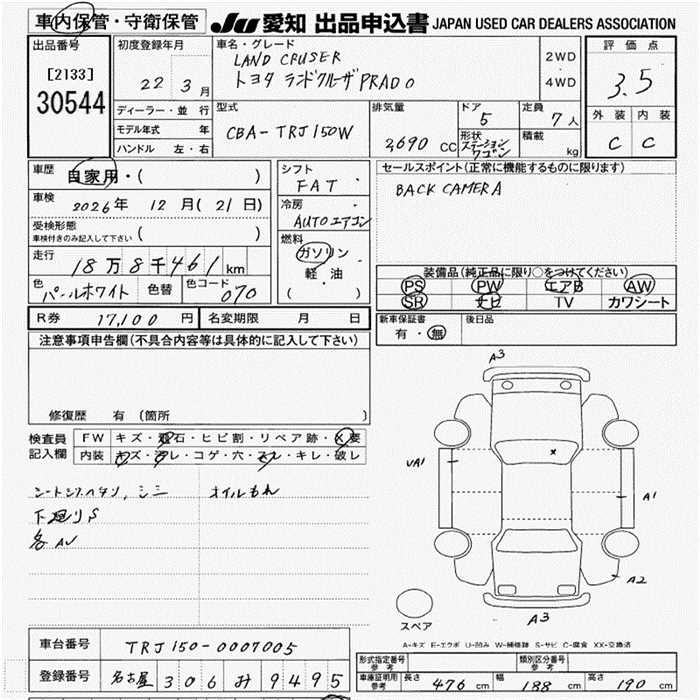 車内保管・守衛保管
JU 愛知 出品申込書 JAPAN USED CAR DEALERS ASSOCIATION
出品番号
[2133]
30544
初度登録年月
22 3月
ディーラー・並行
モデル年式 年
ハンドル 左・右
車名・グレード
LAND CRUSER
トヨタ ランドクルーザPRADO
2WD
4WD
評価点
3.5
外装 内装
C C
型式
CBA-TRJ150W
排気量
2690 CC
ドア
5
形状
ステーションワゴン
定員
7人
積載
kg
車歴
自家用・( )
車検
2026年 12月(21日)
受検形態
車検付きのみ記入して下さい ( )
走行
18万8千461km
色
パールホワイト
色替
色コード
070
シフト
FAT
冷房
AUTOエアコン
燃料
ガソリン
軽・油
( ・ )
セールスポイント(正常に機能するものに限ります)
BACK CAMERA
装備品(純正品に限り○をつけてください)
PS PW エアB AW
SR ナビ TV カワシート
R券 17,100円
名変期限 月 日
新車保証書
有・無
後日品
注意事項申告欄(不具合内容等は具体的に記入して下さい)
修復歴 有 (箇所 )
検査員
記入欄
FW キズ・飛石・ヒビ割・リペア跡・X要
内装 キズ・汚レ・コゲ・穴・スレ・キレ・破レ
シートシワヘタリ, シミ オイルもれ
下廻りS
各AU
A3
UA1
X
A1
A2
A3
スペア
A-キズ E-エクボ U-凹み W-補修跡 S-サビ C-腐食 XX-交換済
車台番号
TRJ150-0007005
登録番号
名古屋 306 み 9495
形式指定番号
参考
類別区分番号
参考
車庫証明用
参考
長さ 476 cm
幅 188 cm
高さ 190 cm